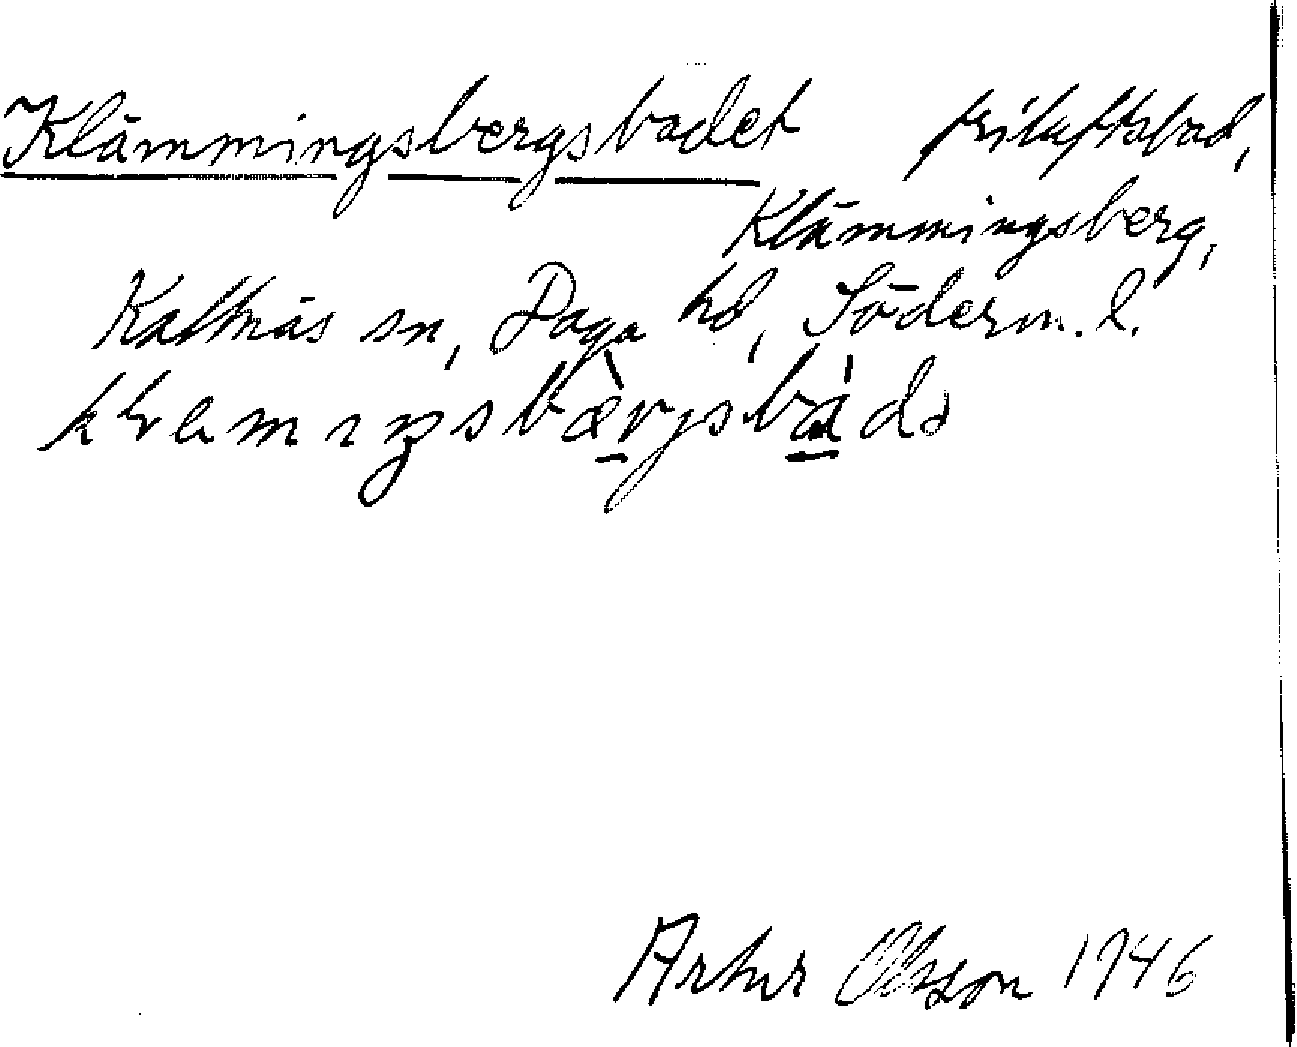 Klämmingsbergsbadet friluftsbad,
Klämmingsberg,
Kattnäs sn, Daga hd, Söderm. l.
Artur Olsson 1946